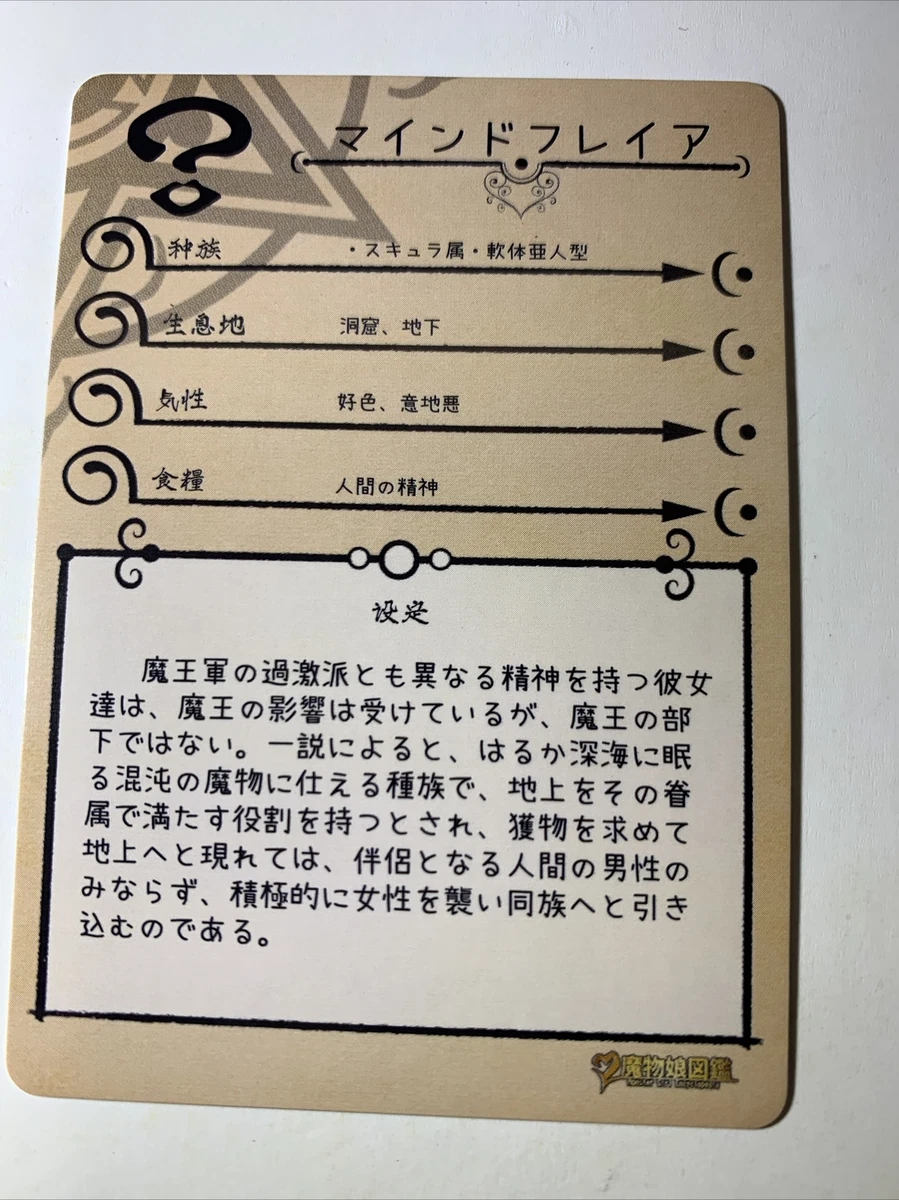 ?
マインドフレイア
种族 ・スキュラ属・軟体亜人型
生息地 洞窟、地下
気性 好色、意地悪
食糧 人間の精神
设定
魔王軍の過激派とも異なる精神を持つ彼女
達は、魔王の影響は受けているが、魔王の部
下ではない。一説によると、はるか深海に眠
る混沌の魔物に仕える種族で、地上をその眷
属で満たす役割を持つとされ、獲物を求めて
地上へと現れては、伴侶となる人間の男性の
みならず、積極的に女性を襲い同族へと引き
込むのである。
魔物娘図鑑
Monster Girl Encyclopedia